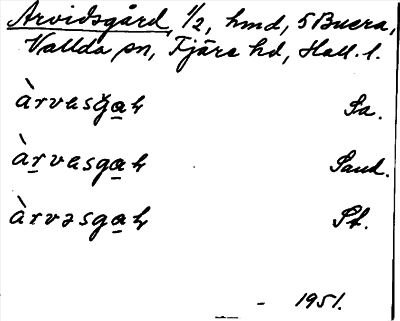 Arvidsgård, 1/2, hmd, 5 Buera,
Vallda sn, Fjäre hd, Hall. l.
àrvasǧa̲ꝶ Sa.
àr̲vasga̲ꝶ Sand.
àrvəsga̲ꝶ St.
- 1951.